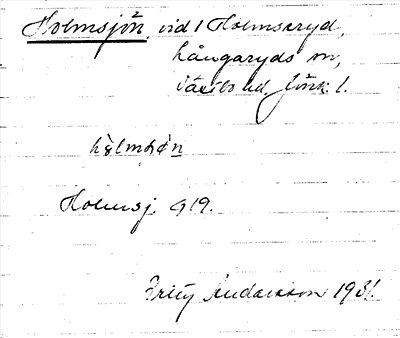 Holmsjön, vid 1 Holmseryd,
Långaryds sn,
Västbo hd, Jönk. l.
hòlmʃøn
Holmsj. G 19.
Fritz Andersson 1931.